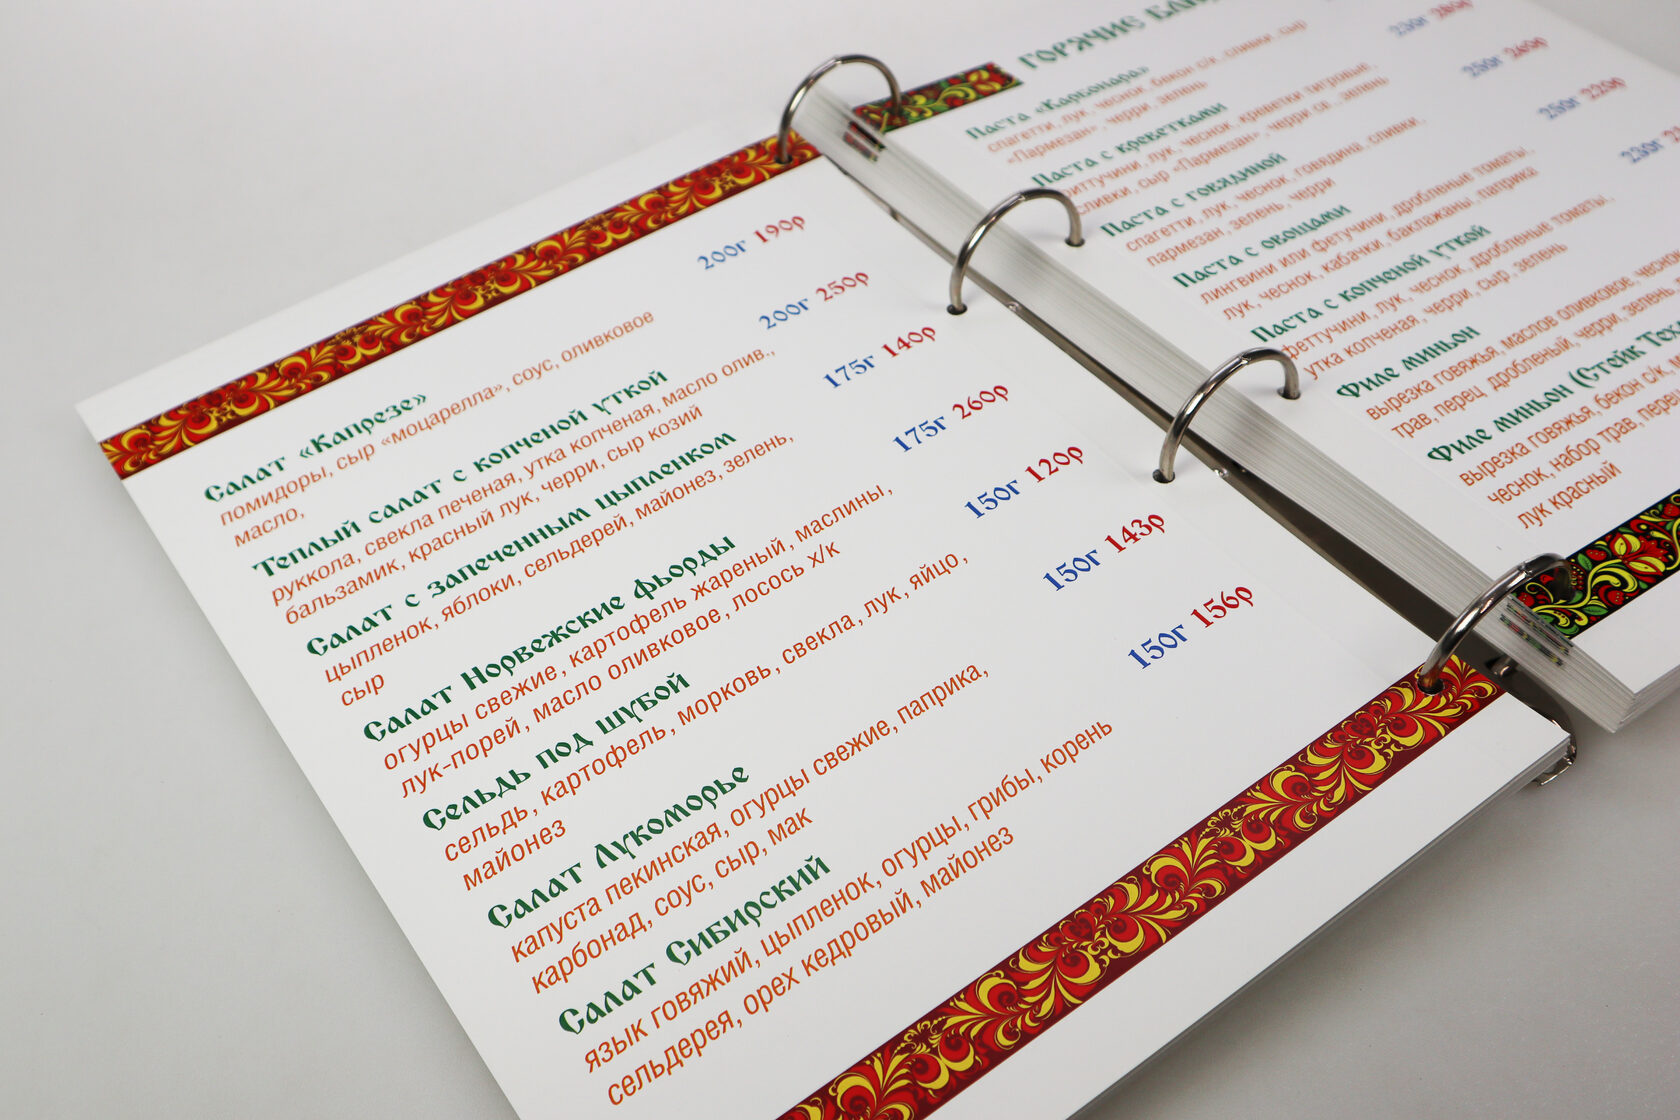 Салат «Капрезе»
200г 190р
помидоры, сыр «моцарелла», соус, оливковое
масло,
Теплый салат с копченой уткой
200г 250р
руккола, свекла печеная, утка копченая, масло олив.,
бальзамик, красный лук, черри, сыр козий
Салат с запеченным цыпленком
175г 140р
цыпленок, яблоки, сельдерей, майонез, зелень,
сыр
Салат Норвежские фьорды
175г 260р
огурцы свежие, картофель жареный, маслины,
лук-порей, масло оливковое, лосось х/к
Сельдь под шубой
150г 120р
сельдь, картофель, морковь, свекла, лук, яйцо,
майонез
Салат Лукоморье
150г 143р
капуста пекинская, огурцы свежие, паприка,
карбонад, соус, сыр, мак
Салат Сибирский
150г 156р
язык говяжий, цыпленок, огурцы, грибы, корень
сельдерея, орех кедровый, майонез
ГОРЯЧИЕ
Паста «Карбонара»
спагетти, лук, чеснок, бекон с/к, сливки, сыр
«Пармезан», черри, зелень
Паста с креветками
230г 280р
лук, чеснок, креветки тигровые,
сливки, сыр «Пармезан», черри се., зелень
Паста с говядиной
250г 260р
спагетти, лук, чеснок, говядина, сливки,
пармезан, зелень, черри
Паста с овощами
250г 220р
лингвини или фетучини, дробленые томаты,
лук, чеснок, кабачки, баклажаны, паприка
Паста с копченой уткой
230г
феттучини, лук, чеснок, дробленые томаты,
утка копченая, черри, сыр, зелень
Филе миньон
вырезка говяжья, маслов оливковое, чеснок
трав, перец дробленый, черри, зелень
Филе миньон (Стейк
вырезка говяжья, бекон с/к,
чеснок, набор трав,
лук красный